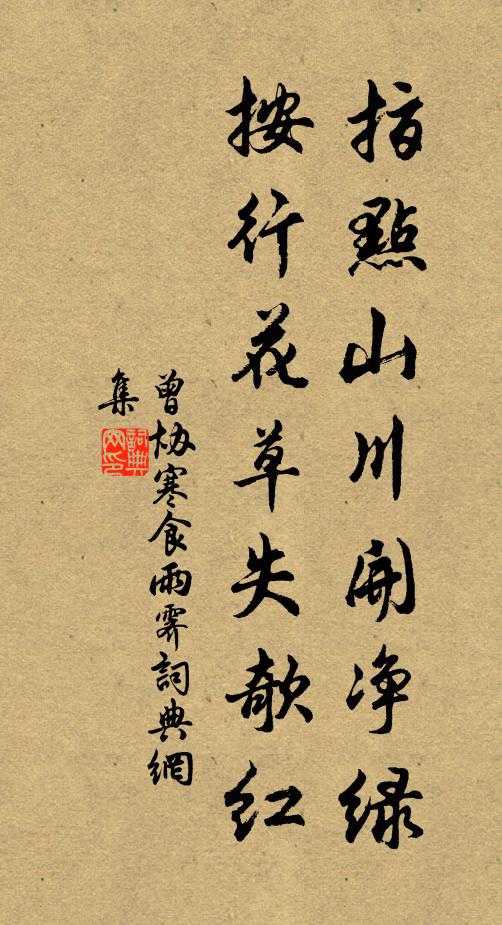 指點山川開净綠
按行花草失欹紅
曾協寒食雨霽詞典網
集
詞典網印